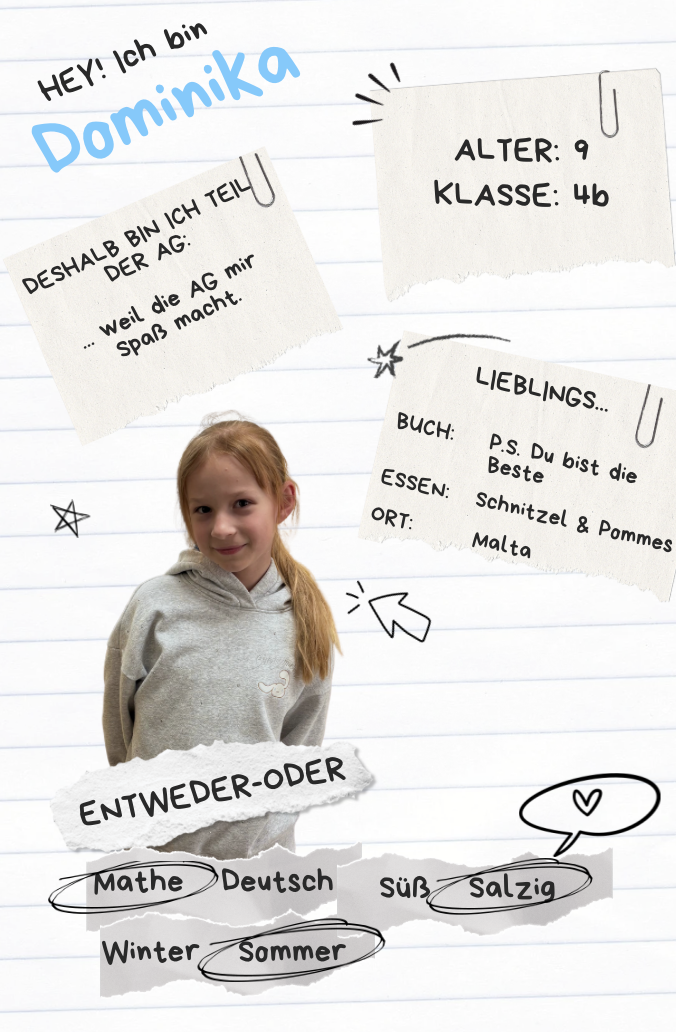 HEY! Ich bin
Dominika
ALTER: 9
KLASSE: 4b
DESHALB BIN ICH TEIL
DER AG:
... weil die AG mir
Spaß macht.
LIEBLINGS...
BUCH:
P.S. Du bist die
Beste
ESSEN:
Schnitzel & Pommes
ORT:
Malta
ENTWEDER-ODER
Mathe Deutsch
Süß Salzig
Winter Sommer